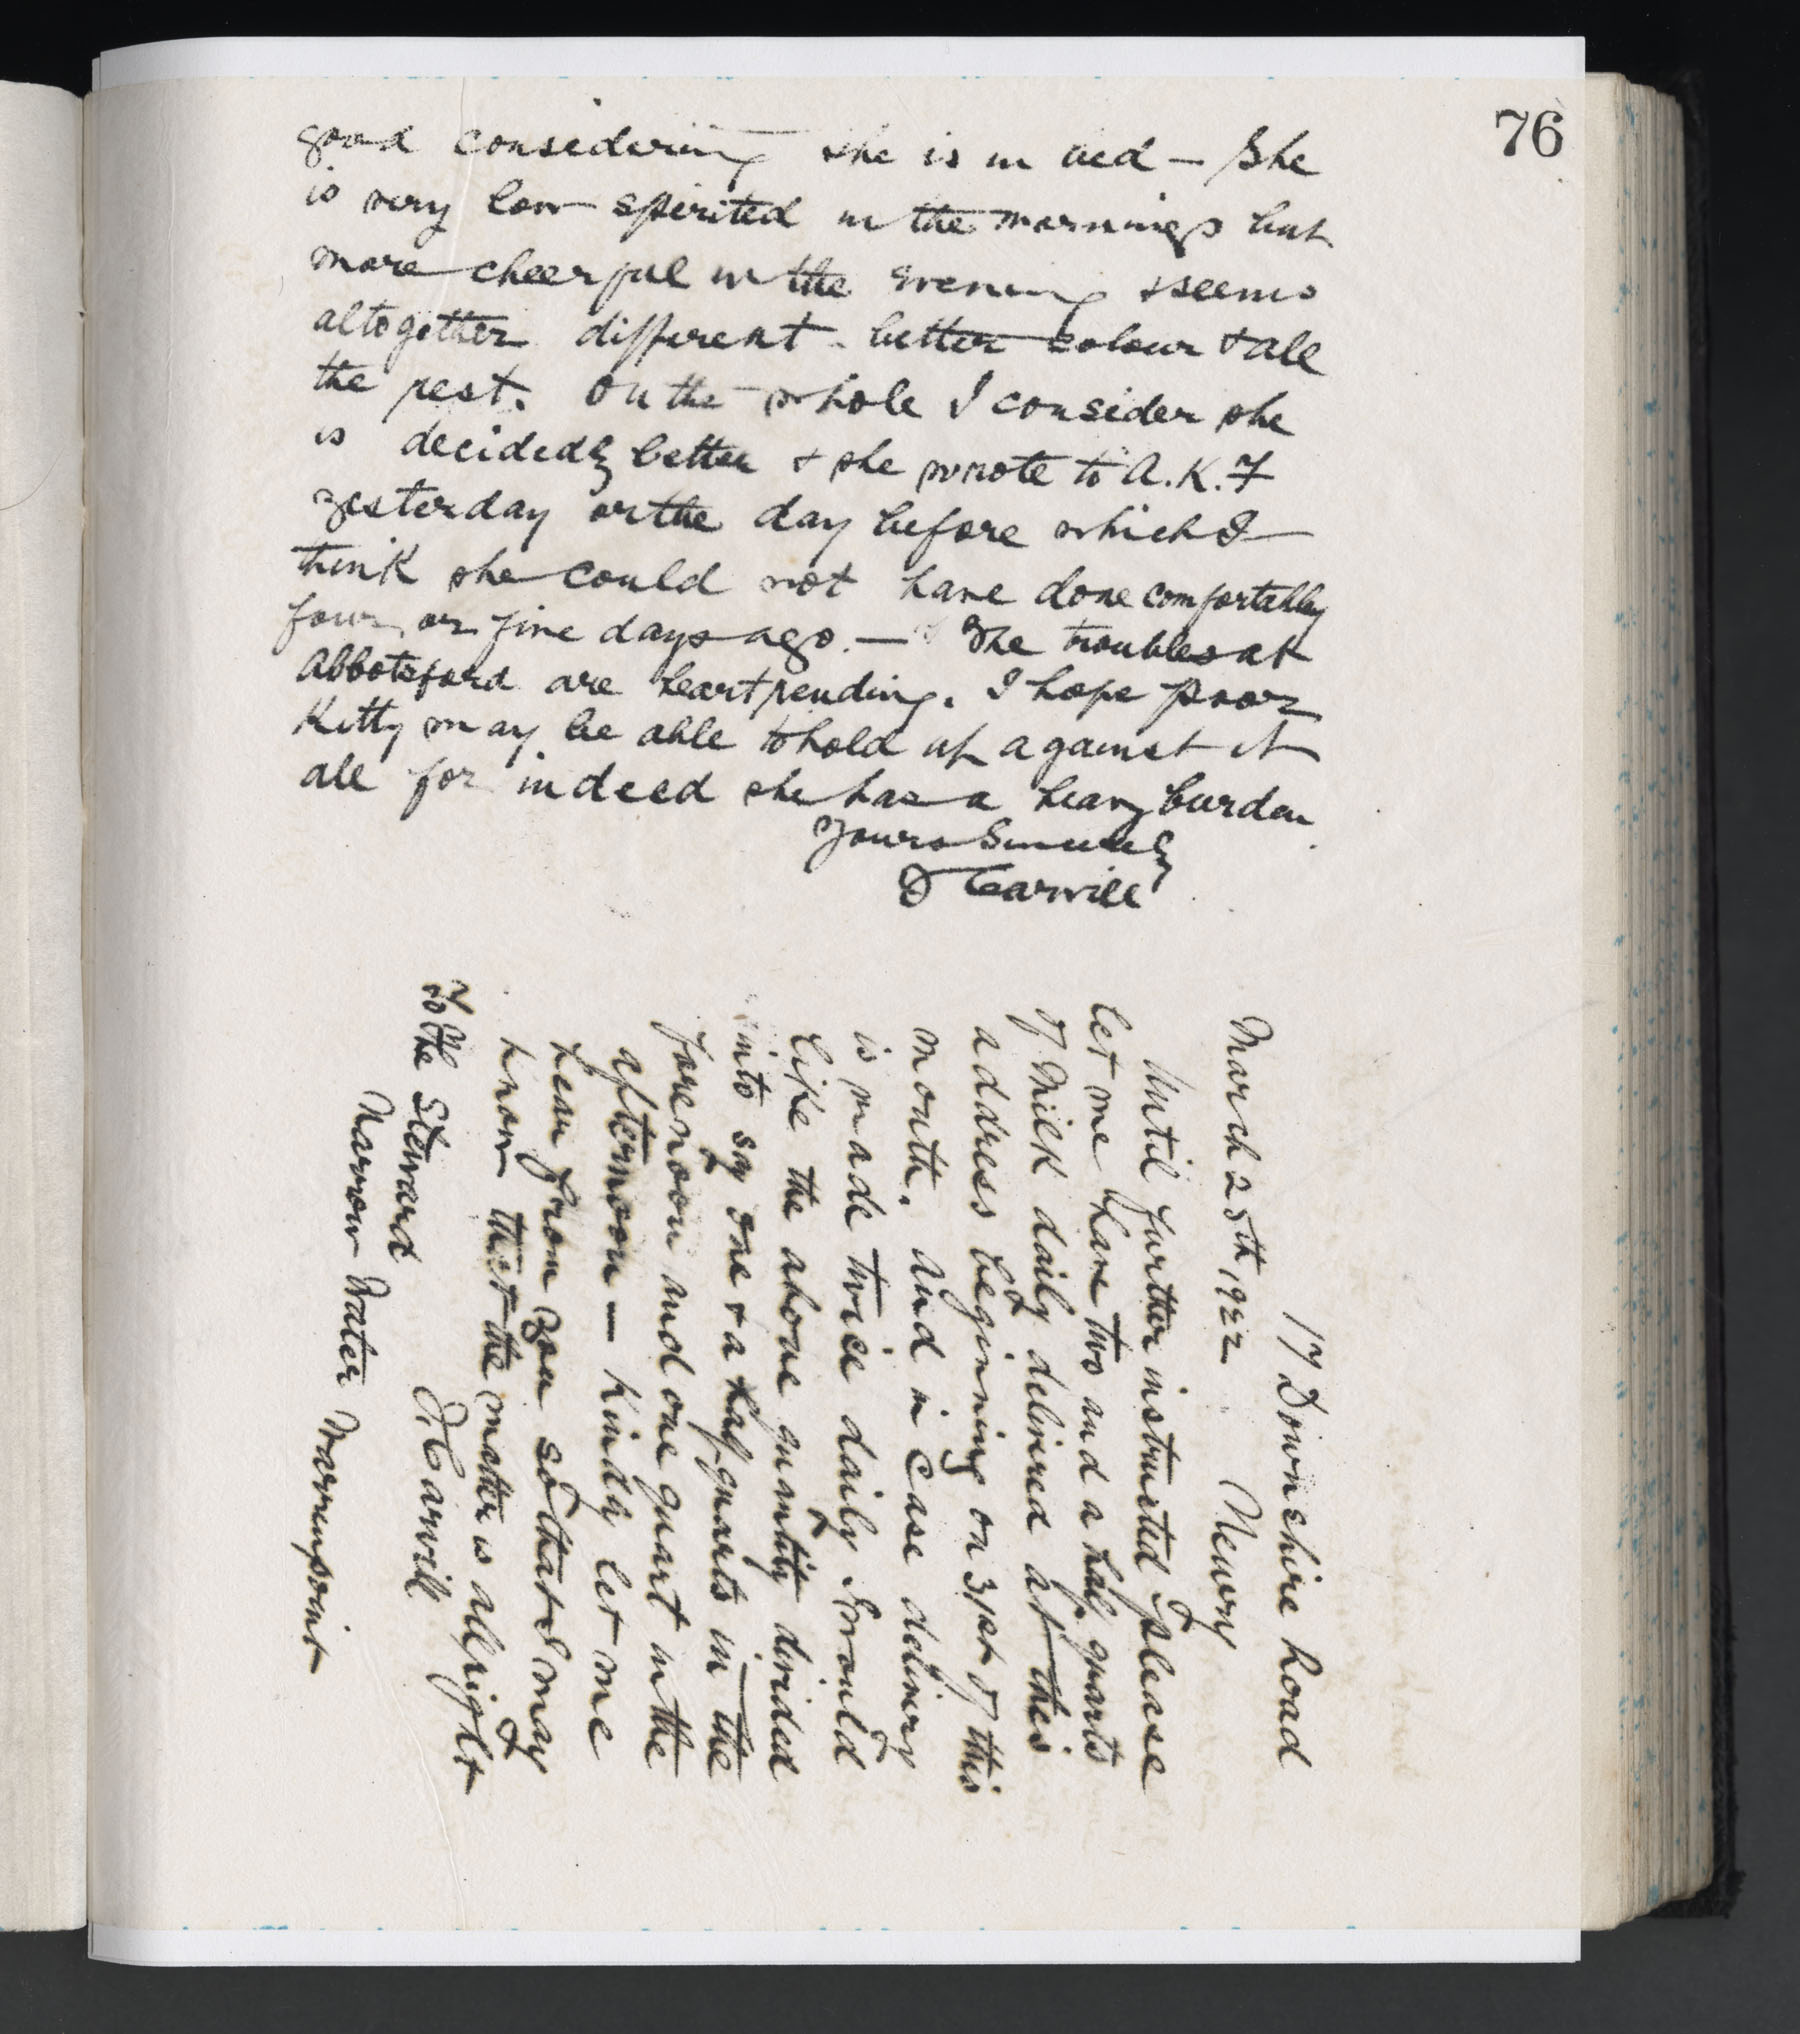 76
good considering she is in bed — She
is very low spirited in the mornings but
more cheerful in the evening & seems
altogether different - better colour & all
the rest. On the whole I consider she
is decidedly better & she wrote to A.K.F
yesterday or the day before which I
think she could not have done comfortably
four or five days ago. — The troubles at
Abbotsford are heartrending. I hope poor
Kitty may be able to hold up against it
all for indeed she has a heavy burden
Yours Sincerely
Carvill
17 Downshire Road
March 25th 1922 Newry
Until further instructed please
let me have two and a half quarts
of Milk daily delivered at this
address beginning on 31st of this
month. And in case delivery
is made twice daily I would
like the above quantity divided
into say one & a half quarts in the
forenoon and one quart in the
afternoon — Kindly let me
hear from you so that I may
know that the matter is all right
Carvill
To the Steward
Narrow Water Warrenpoint